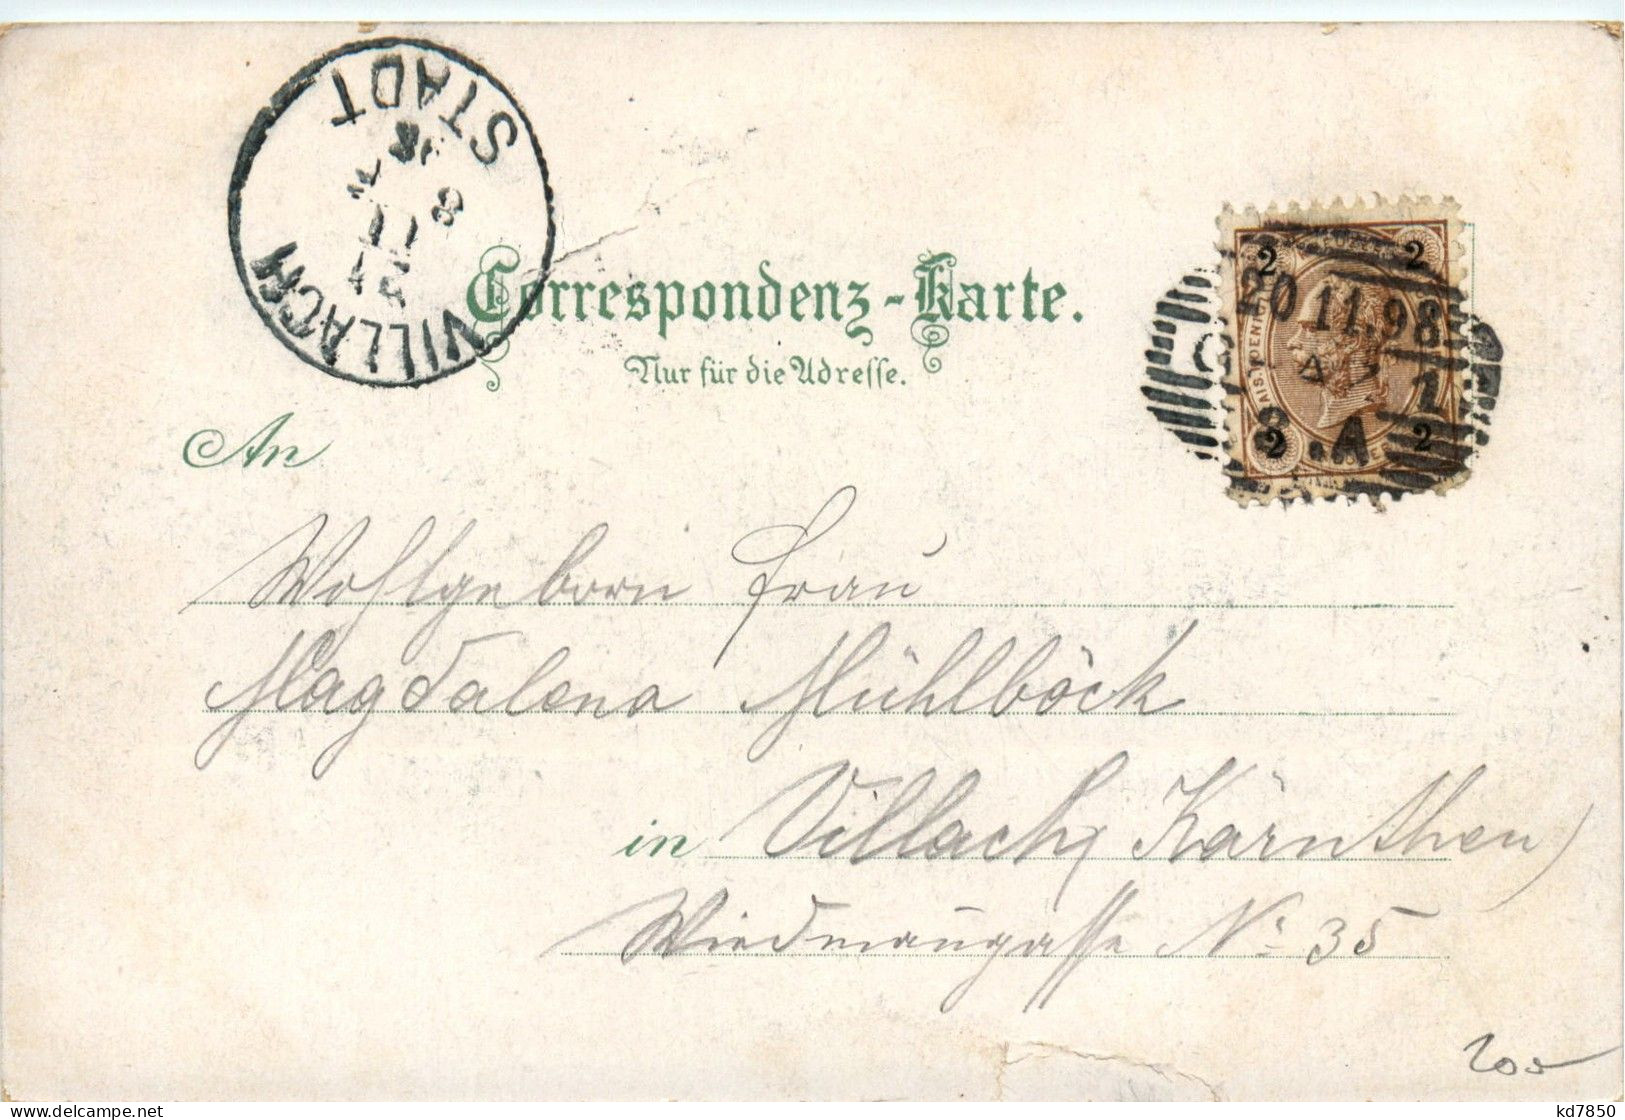 VILLACH
STADT
21 11
8
Correspondenz-Karte.
Nur für die Adresse.
2 2
20 11.98
1
8.A
2 2
An
Wohlgeborn Frau
Magdalena Mühlböck
in Villach, Kärnthen)
Wiedmaŭgasse No: 35
200
delcampe.net
kd7850